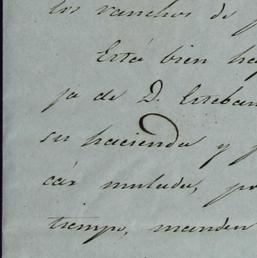 los ranchos de
Está bien ha
ja de D. Esteban
su hacienda y
cár mulada, po
tiempo, mandar